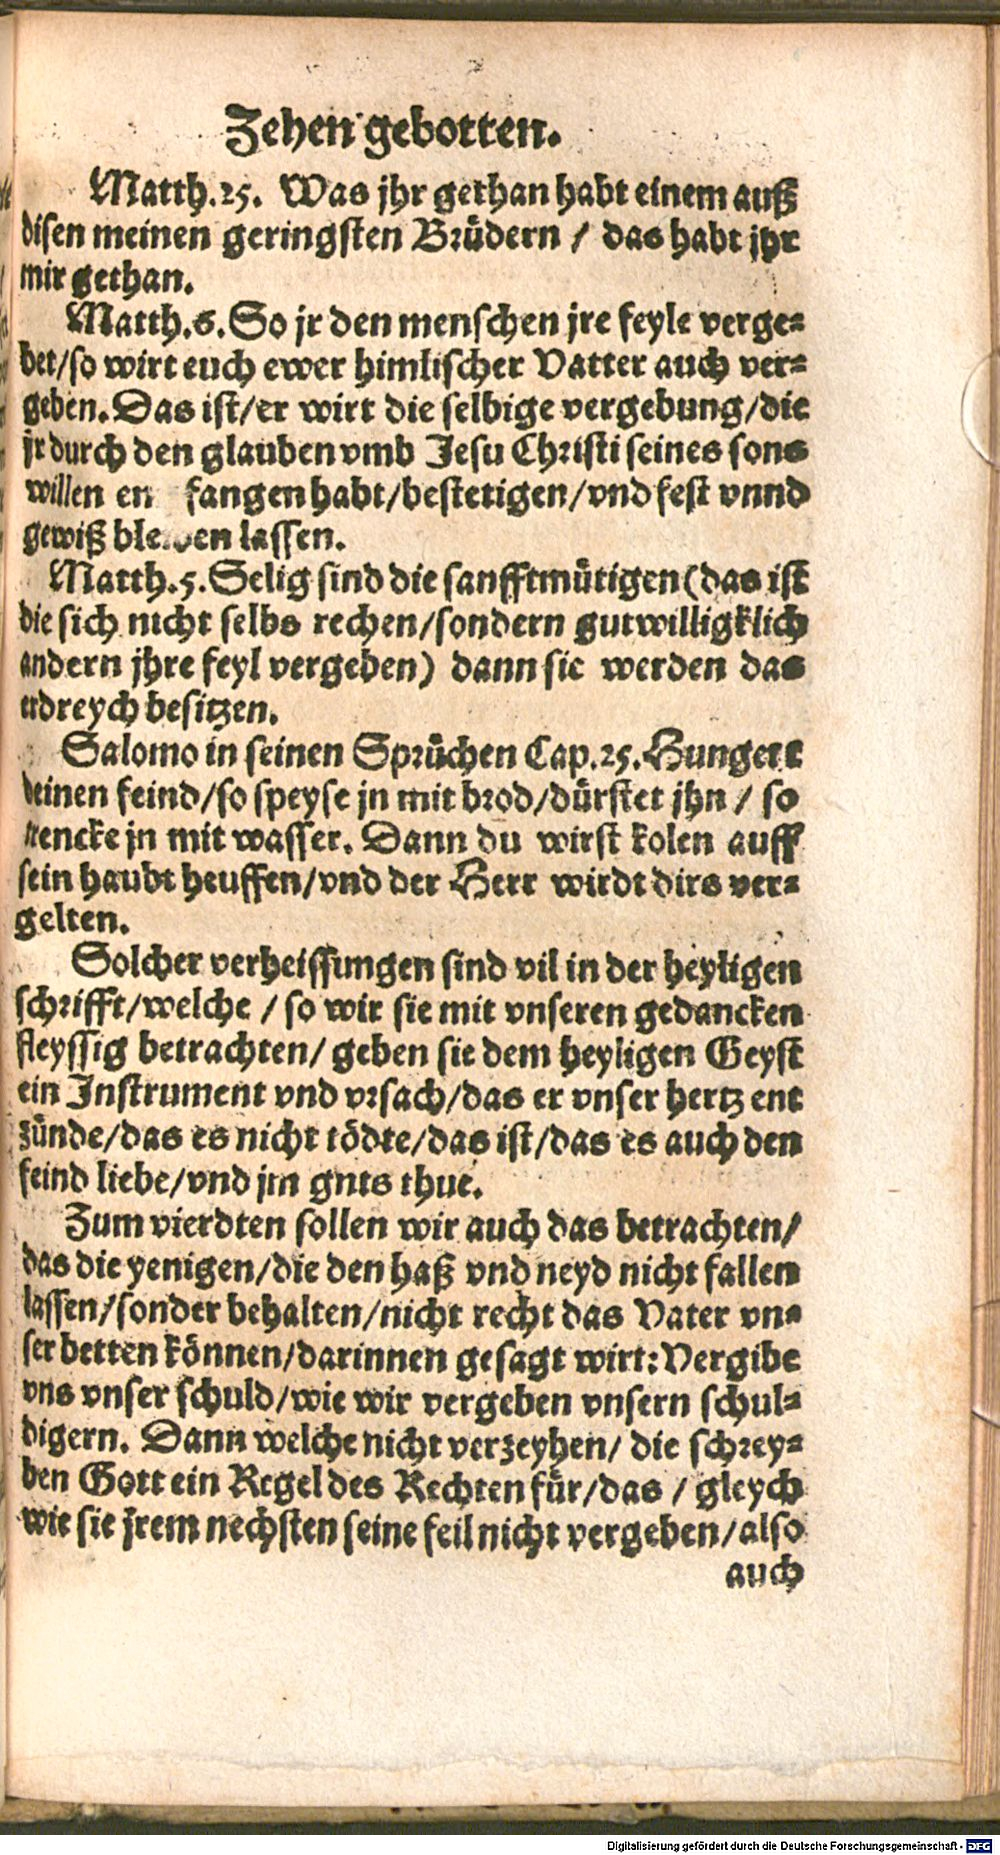 Zehen gebotten.
Matth.25. Was jhr gethan habt einem auß
disen meinen geringsten Brüdern / das habt jhr
mir gethan.
Matth.6. So jr den menschen jre feyle verge-
bet/so wirt euch ewer himlischer Vatter auch ver-
geben. Das ist/er wirt die selbige vergebung/die
jr durch den glauben vmb Jesu Christi seines sons
willen en fangen habt/bestetigen/vnd fest vnnd
gewiß bleiben lassen.
Matth.5. Selig sind die sanfftmütigen (das ist
die sich nicht selbs rechen/sondern gutwilligklich
andern jhre feyl vergeben) dann sie werden das
erdreych besitzen.
Salomo in seinen Sprüchen Cap.25. Hungert
deinen feind/so speyse jn mit brod/dürstet jhn / so
trencke jn mit wasser. Dann du wirst kolen auff
sein haubt heuffen/vnd der Herr wirdt dirs ver-
gelten.
Solcher verheissungen sind vil in der heyligen
schrifft/welche / so wir sie mit vnseren gedancken
fleyssig betrachten/ geben sie dem heyligen Geyst
ein Instrument vnd vrsach/das er vnser hertz ent
zünde/das es nicht tödte/das ist/das es auch den
feind liebe/vnd jm gnts thue.
Zum vierdten sollen wir auch das betrachten/
das die yenigen/die den haß vnd neyd nicht fallen
lassen/sonder behalten/nicht recht das Vater vn-
ser betten können/darinnen gesagt wirt: Vergibe
vns vnser schuld/wie wir vergeben vnsern schul-
digern. Dann welche nicht verzeyhen/ die schrey-
ben Gott ein Regel des Rechten für/das / gleych
wie sie jrem nechsten seine feil nicht vergeben/also
auch
Digitalisierung gefördert durch die Deutsche Forschungsgemeinschaft - DFG